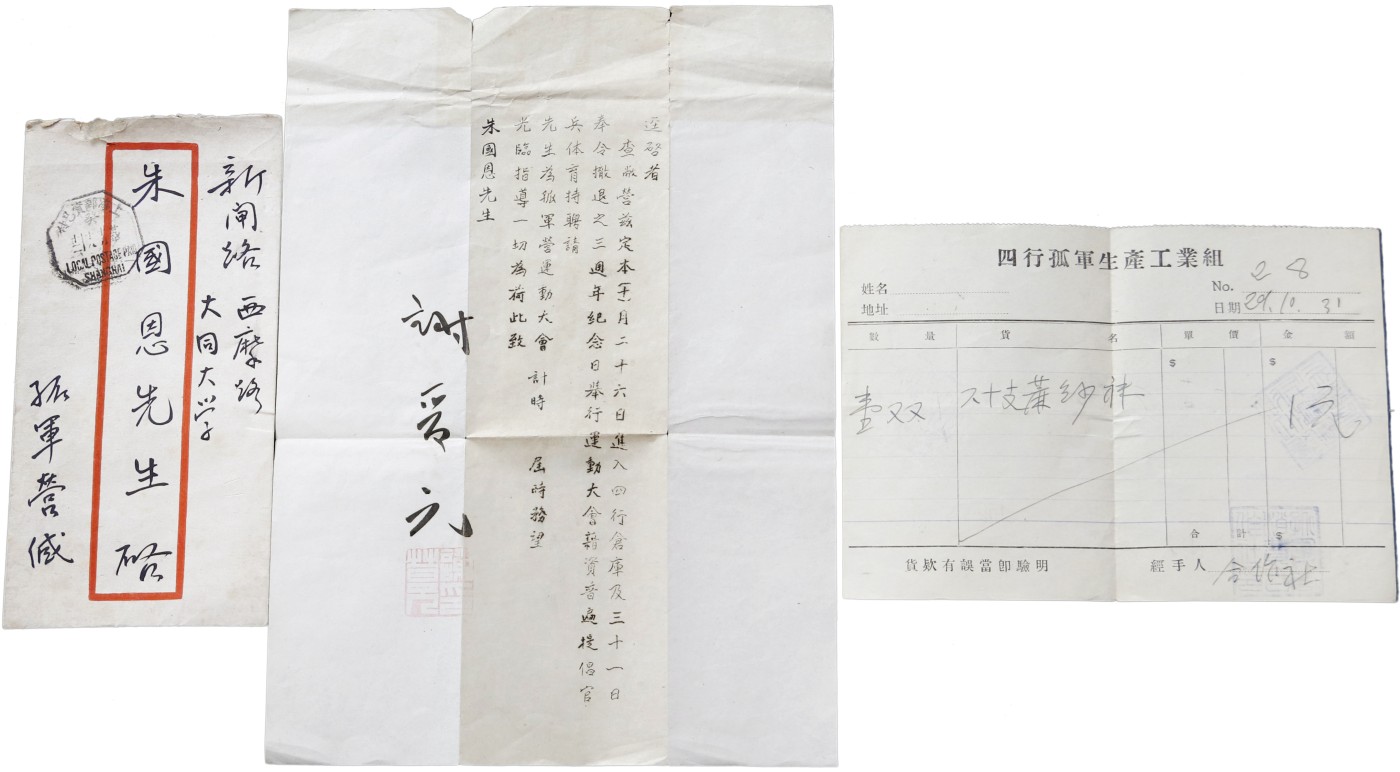 新閘路 西摩路
大同大学
朱國恩先生啓
孤軍營緘
LOCAL POSTAGE PAID
SHANGHAI
逕啓者
查敝營茲定本(十)月二十六日進入四行倉庫及三十一日
奉令撤退之三週年紀念日舉行運動大會藉資普遍提倡官
兵体育特聘請
先生為孤軍營運動大會 計時 屆時務望
光臨指導一切為荷此致
朱國恩先生
謝晋元
四行孤軍生產工業組
姓名
No. 28
地址
日期 29.10.31
數量 貨名 單價 金額
$ $
壹双 不十支蔴紗袜 1元
合計 $
貨欵有誤當卽驗明 經手人 合作社